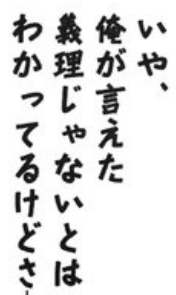 いや、
俺が言えた
義理じゃないとは
わかってるけどさ